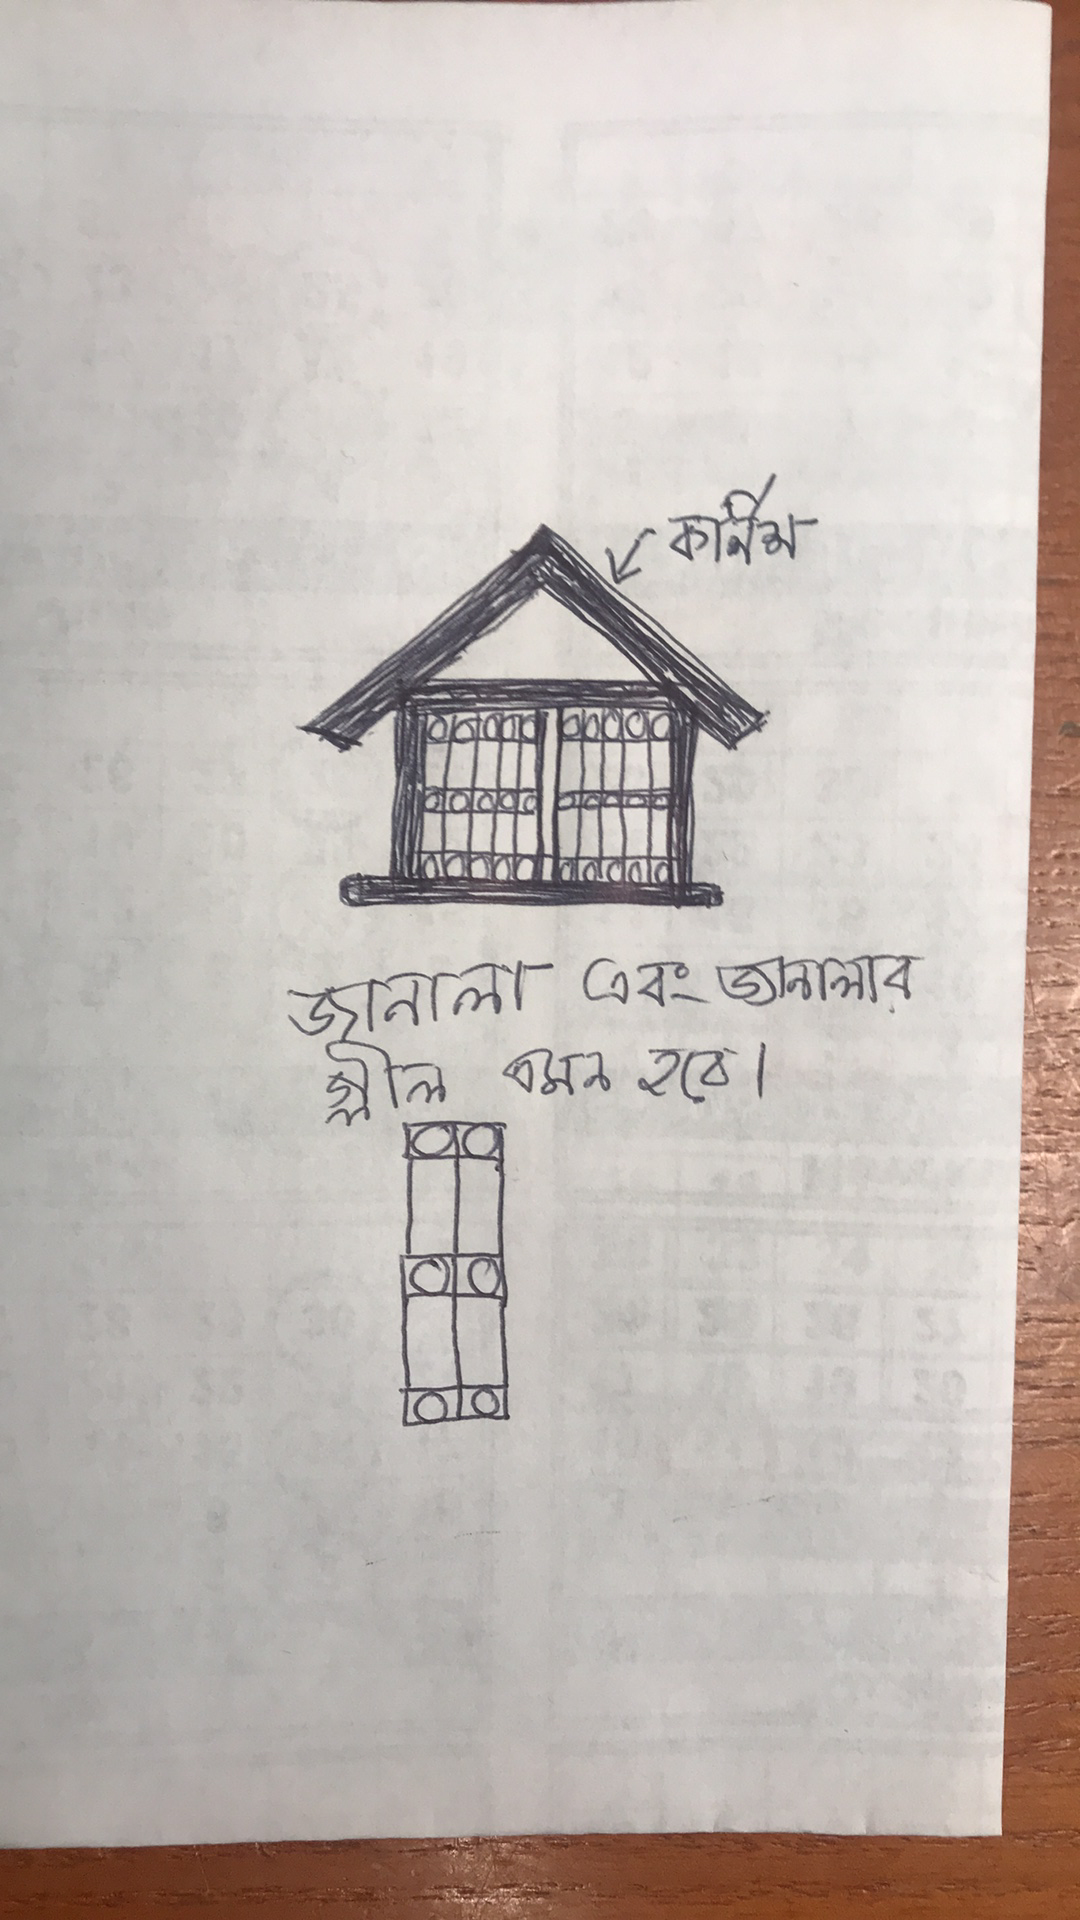 কার্নিশ
জানালা এবং জানালার
গ্রীল এমন হবে।